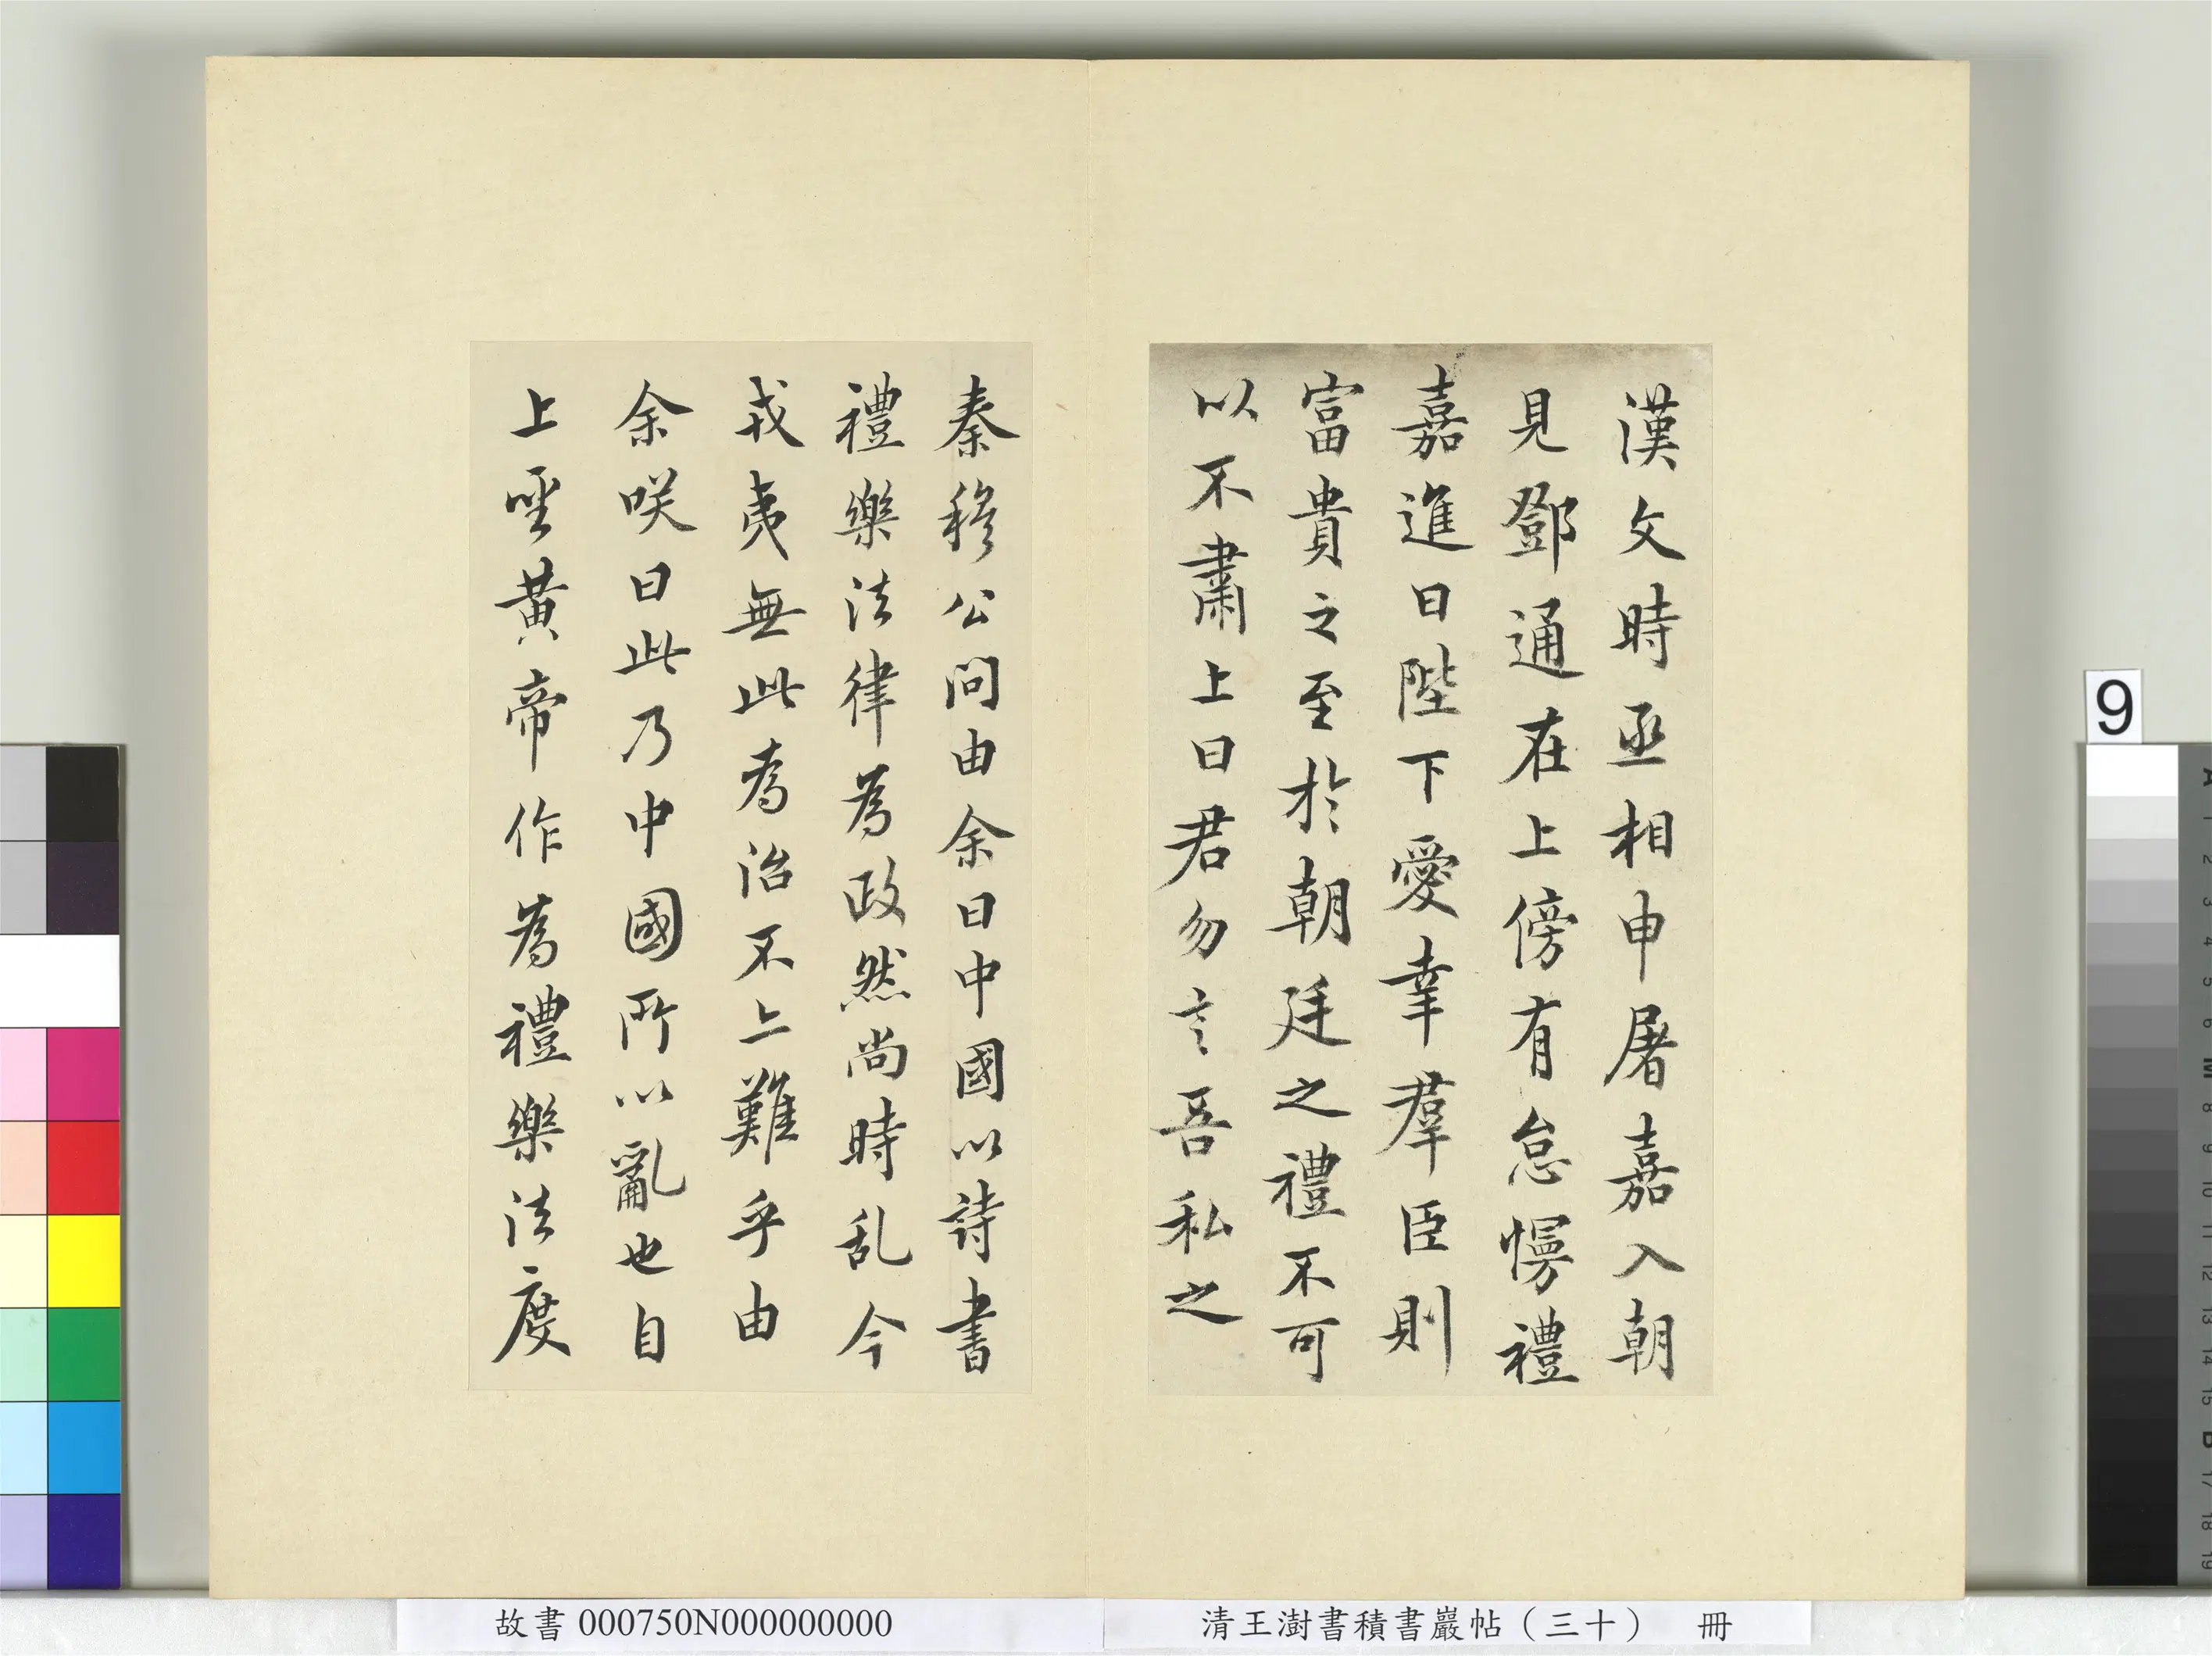 漢文時丞相申屠嘉入朝
見鄧通在上傍有怠慢禮
嘉進曰陛下愛幸羣臣則
富貴之至於朝廷之禮不可
以不肅上曰君勿言吾私之
秦穆公問由余曰中國以詩書
禮樂法律為政然尚時乱今
戎夷無此為治不亦難乎由
余咲曰此乃中國所以亂也自
上聖黃帝作為禮樂法度
故書 000750N000000000
清王澍書積書巖帖（三十） 冊
9
A 1 2 3 4 5 6 M 8 9 10 11 12 13 14 15 B 17 18 19